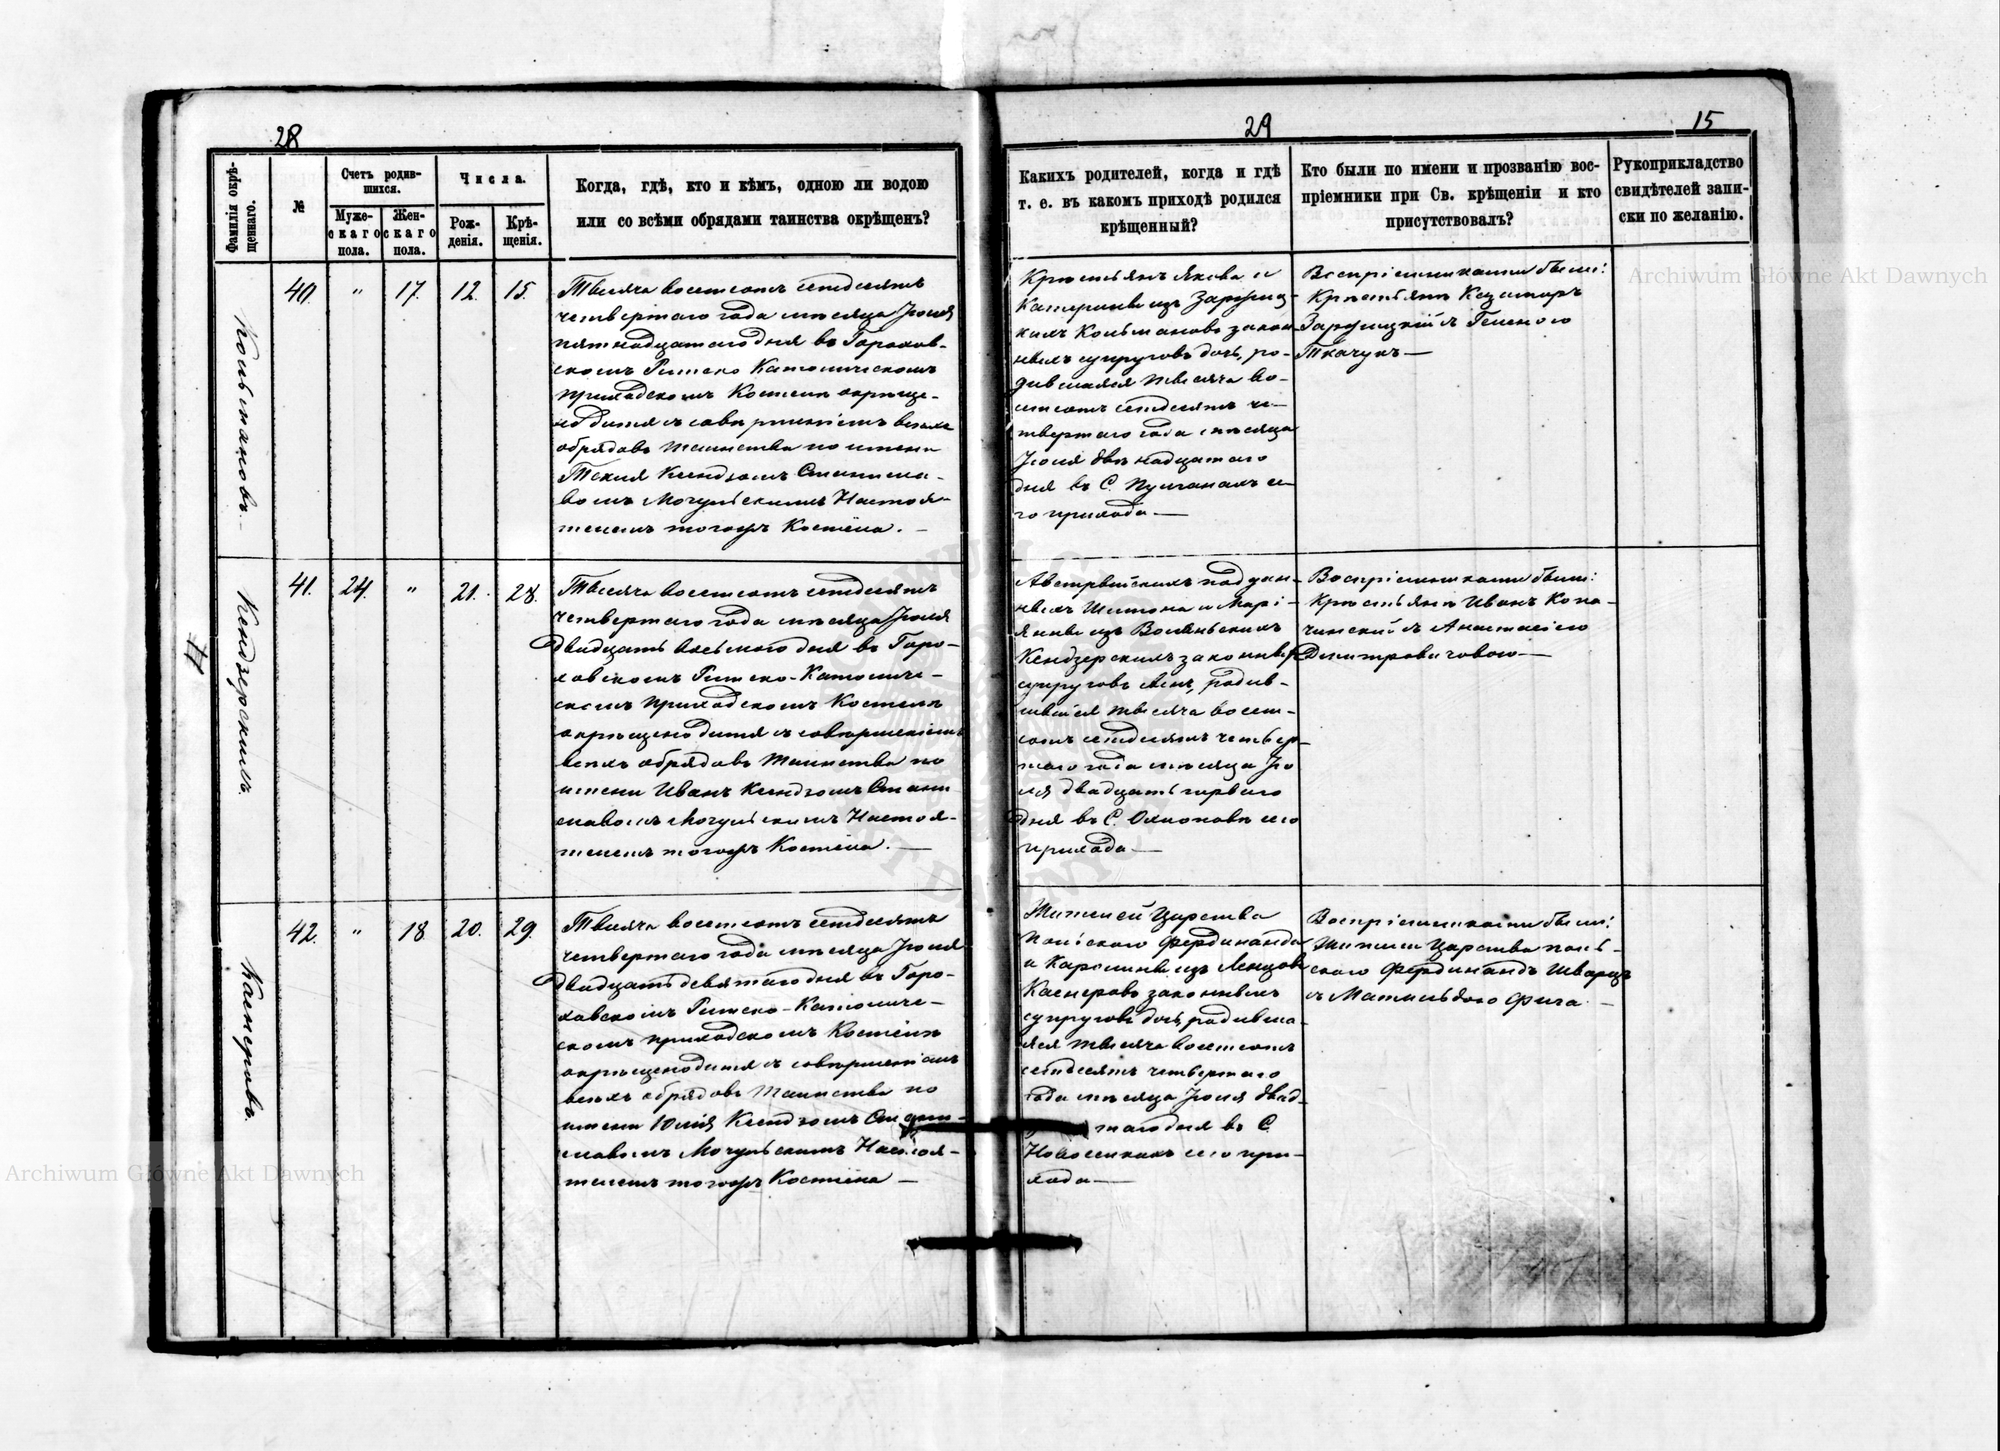 28
Фамилія окрѣ-
щеннаго.
№
Счетъ родив-
шихся.
Муже-
скаго
пола.
Жен-
скаго
пола.
Числа.
Рож-
денія.
Крѣ-
щенія.
Когда, гдѣ, кто и кѣмъ, одною ли водою
или со всѣми обрядами таинства окрѣщенъ?
Кольмановъ.
40.
"
17.
12.
15.
Тысяча восемсотъ семдесятъ
четвертаго года мѣсяца Іюля
пятнадцатаго дня въ Горохов-
скомъ Римско Католическомъ
приходскомъ Костелѣ окрѣще-
но дитя съ совершеніемъ всѣхъ
обрядовъ таинства по имени
Текля Ксендзомъ Станисла-
вомъ Могульскимъ Настоя-
телемъ тогожъ Костёла. —
Кендзерскимъ.
41.
24.
"
21.
28.
Тысяча восемсотъ семдесятъ
четвертаго года мѣсяца Іюля
двадцать восьмого дня въ Горо-
ховскомъ Римско-Католиче-
скомъ приходскомъ Костелѣ
окрѣщено дитя съ совершеніемъ
всѣхъ обрядовъ таинства по
имени Иванъ Ксендзомъ Стани
славомъ Могульскимъ Настоя-
телемъ тогожъ Костёла. —
Каснеровъ.
42.
"
18
20.
29.
Тысяча восемсотъ семдесятъ
четвертаго года мѣсяца Іюля
двадцать девятаго дня въ Горо-
ховскомъ Римско-Католиче-
скомъ приходскомъ Костелѣ
окрѣщено дитя съ совершеніемъ
всѣхъ обрядовъ таинства по
имени Юлія Ксендзомъ Стани-
славомъ Могульскимъ Настоя-
телемъ тогожъ Костёла —
29
15
Какихъ родителей, когда и гдѣ
т. е. въ какомъ приходѣ родился
крѣщенный?
Кто были по имени и прозванію вос-
пріемники при Св. крѣщеніи и кто
присутствовалъ?
Рукоприкладство
свидѣтелей запи-
ски по желанію.
Крестьянъ Якова и
Катерины изъ Заржиц-
кихъ Кольмановъ закон
ныхъ супруговъ дочь, ро-
дившаяся тысяча во-
семсотъ семдесятъ че-
твертаго года мѣсяца
Іюля двѣнадцатаго
дня въ С. се-
го прихода —
Воспріемниками были:
Крестьяне Казимиръ
Заржицкій съ Геленою
Ткачукъ —
Австрійскихъ поддан-
ныхъ Шимона и Марі-
янны изъ Волянскихъ
Кендзерскихъ законныхъ
супруговъ сынъ, родив-
шійся тысяча восем-
сотъ семдесятъ четвер-
таго года мѣсяца Ію
ля двадцать перваго
дня въ С. сего
прихода —
Воспріемниками были:
Крестьяне Иванъ Копа-
чинскій съ Анастасіею
Дмитровичовою —
Жителей Царства
Польского Фердинанда
и Каролины изъ Ленцовъ
Каснеровъ законныхъ
супруговъ дочь, родивша-
яся тысяча восемсотъ
семдесятъ четвертаго
года мѣсяца Іюля двад-
таго дня въ С.
Новоселкахъ сего при-
хода —
Воспріемниками были:
Жители Царства Поль-
ского Фердинандъ Шварцъ
съ Матильдою Фига —
Archiwum Główne Akt Dawnych
Archiwum Główne Akt Dawnych